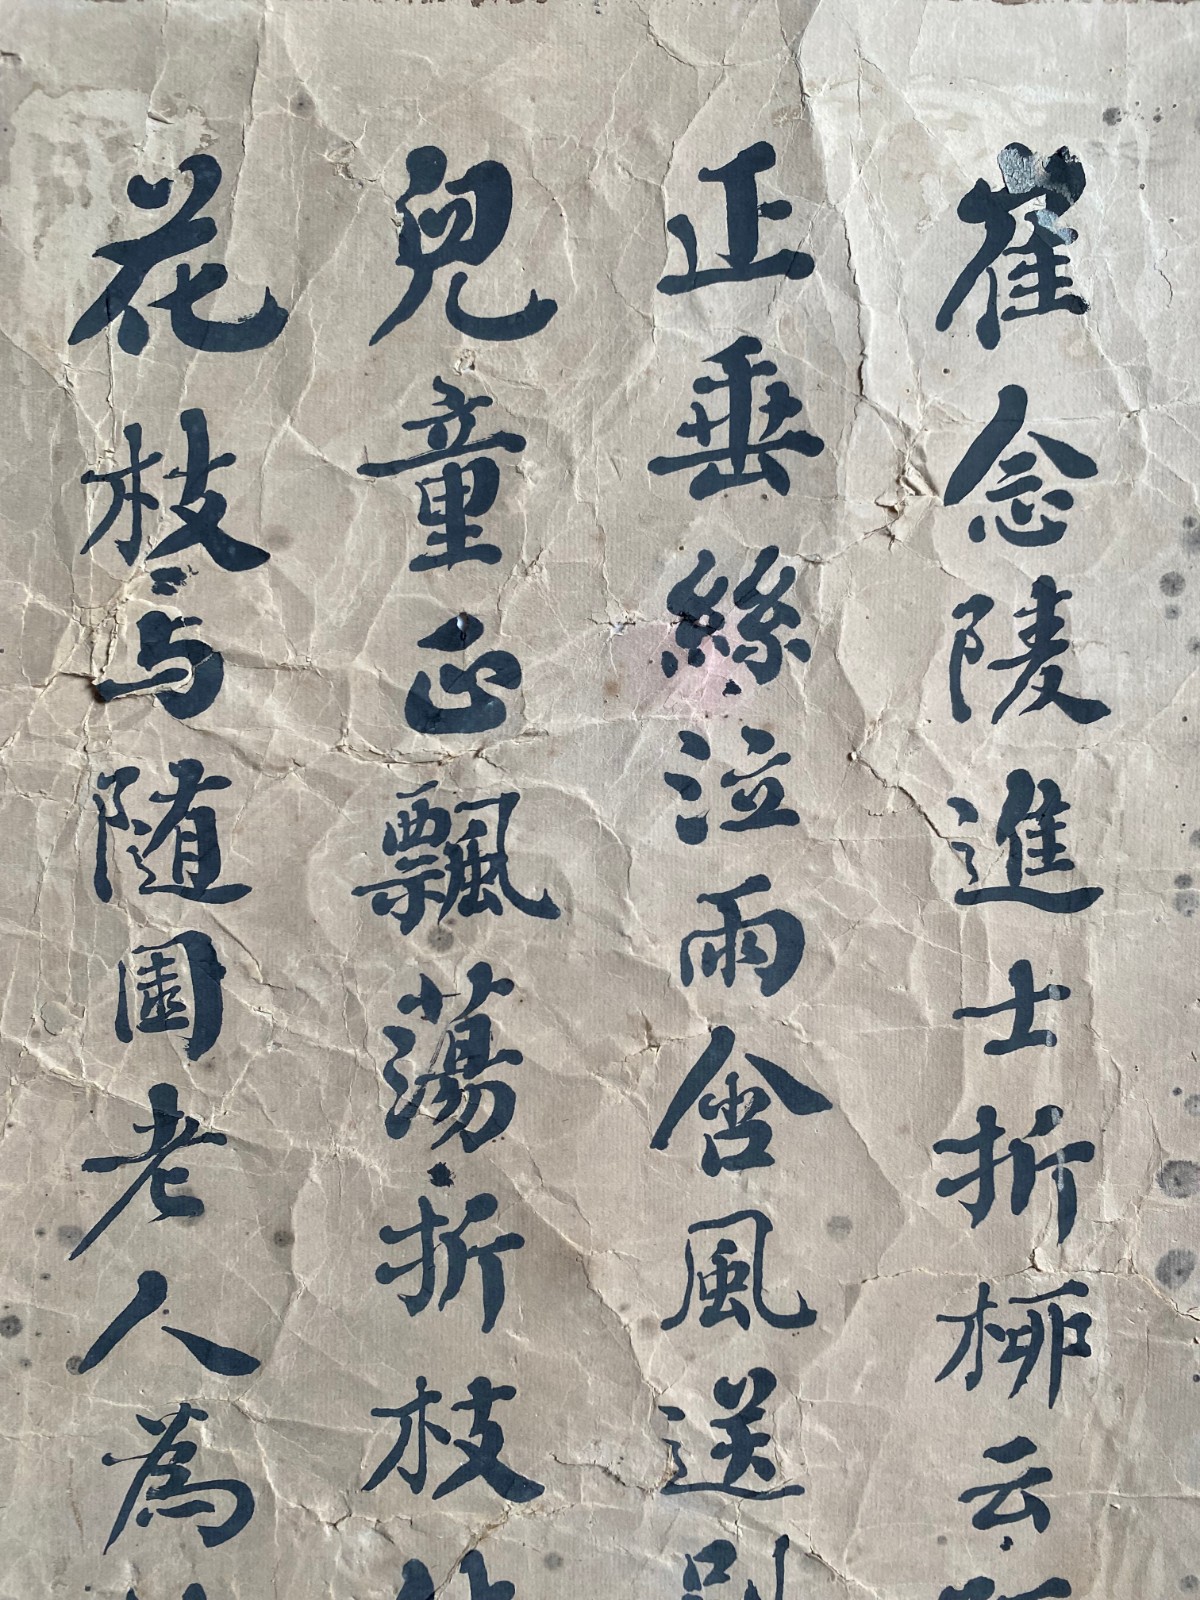 崔念陵進士折栁云
正垂絲泣雨含風送別
兒童正飄蕩折枝
花枝与随園老人為